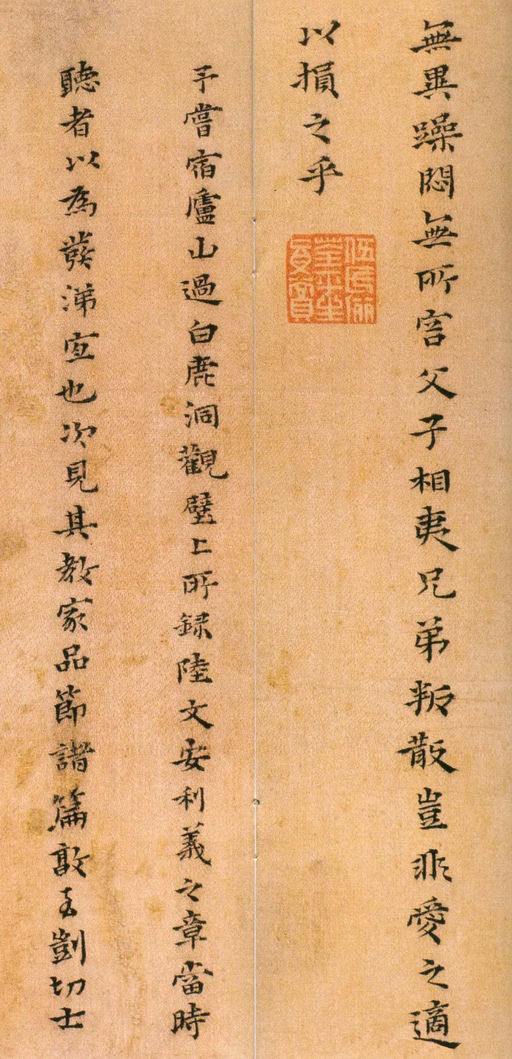 無異躁悶無所容父子相夷兄弟叛散豈非愛之適
以損之乎
予嘗宿廬山過白鹿洞觀壁上所錄陸文安利義之章當時
聽者以為發涕宜也次見其教家品節諸篇敦玄剴切士